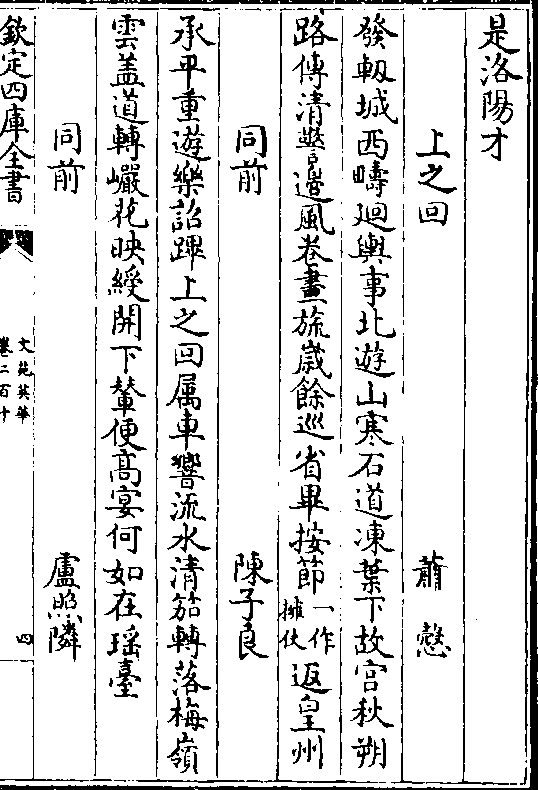 是洛陽才
上之回　蕭慤
發軔城西疇廻輿事北遊山寒石道凍葉下故宫秋朔
路傳清警邉風卷畫旒嵗餘巡省畢按節一作擁仗返皇州
同前　陳子良
承平重遊樂詔蹕上之回属車響流水清笳轉落梅嶺
雲盖道轉巗花映綬開下輦便髙宴何如在瑶臺
同前　盧照隣
欽定四庫全書
文苑英華
卷二百十
四